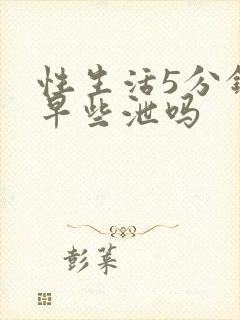 性生活5分钟
早些泄吗
彭莱